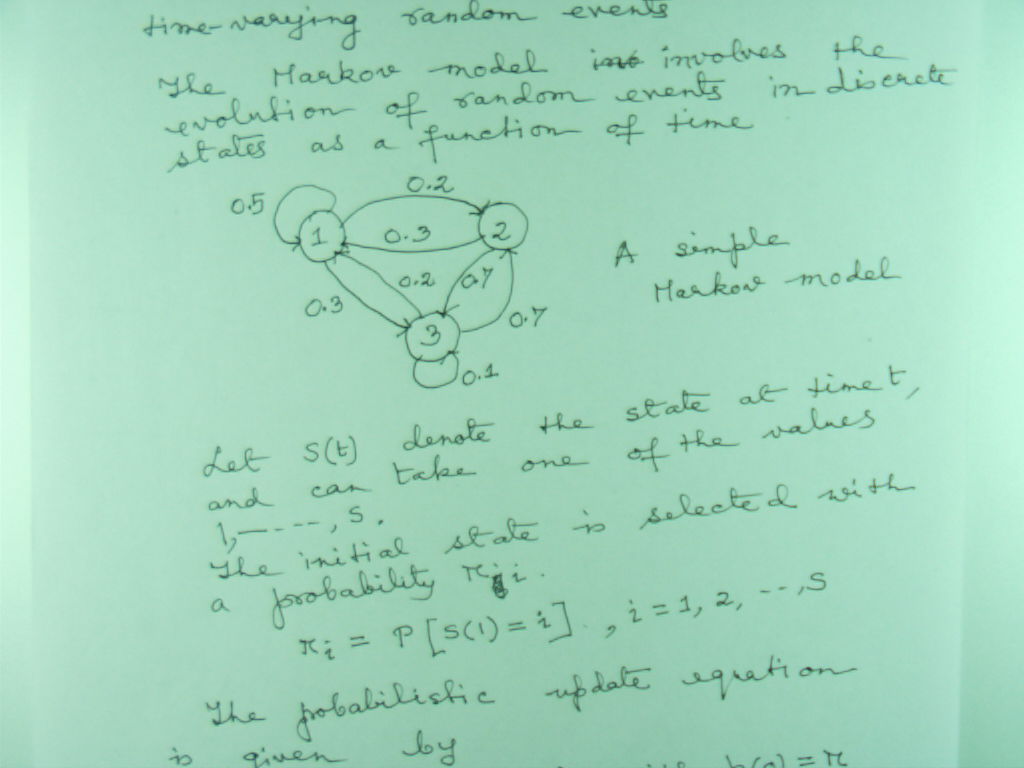 time-varying random events
The Markov model involves the
evolution of random events in discrete
states as a function of time
0.2
0.5
1
0.3
2
0.2
0.7
0.3
3
0.7
0.1
A simple
Markov model
Let S(t) denote the state at time t,
and can take one of the values
1,-----, S.
The initial state is selected with
a probability πi.
πi = P[S(1) = i]., i = 1, 2, --, S
The probabilistic update eqration
is given by p(0) = π